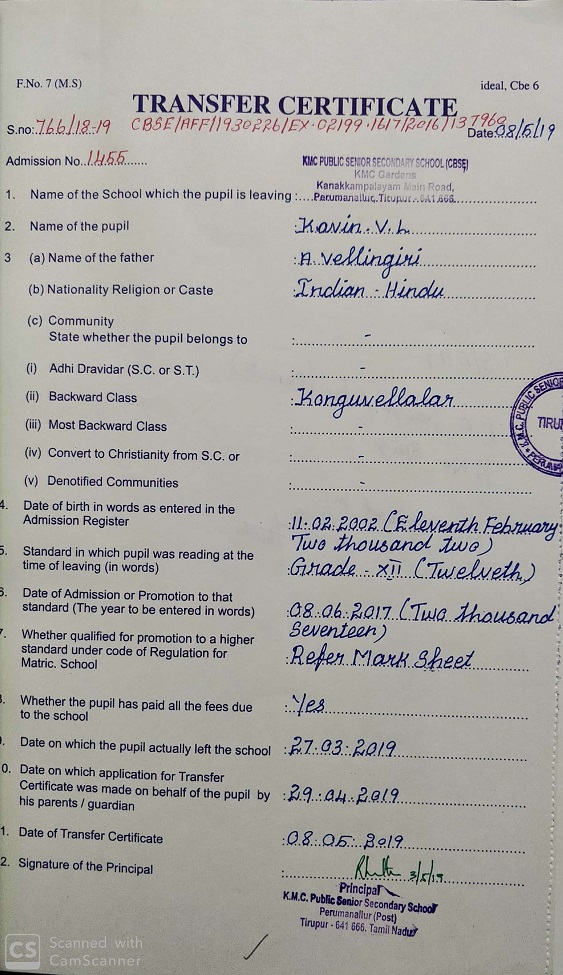 F.No. 7 (M.S)
ideal, Cbe 6
TRANSFER CERTIFICATE
S.no: 766/18-19 CBSE/AFF/1930226/EX-02199-1617/2016/137960 Date: 08/5/19
Admission No. 1455
KMC PUBLIC SENIOR SECONDARY SCHOOL (CBSE)
KMC Gardens
Kanakkampalayam Main Road,
1. Name of the School which the pupil is leaving : Perumanallur, Tirupur - 641 666.
2. Name of the pupil : Kavin. V. L
3 (a) Name of the father : A. Vellingiri
(b) Nationality Religion or Caste : Indian - Hindu
(c) Community
State whether the pupil belongs to : -
(i) Adhi Dravidar (S.C. or S.T.) : -
(ii) Backward Class : Konguvellalar
(iii) Most Backward Class : -
(iv) Convert to Christianity from S.C. or : -
(v) Denotified Communities : -
K.M.C. PUBLIC SENIOR
TIRU
PERUMA
4. Date of birth in words as entered in the
Admission Register : 11.02.2002 (Eleventh February
Two thousand two)
5. Standard in which pupil was reading at the
time of leaving (in words) Grade - XII (Twelveth)
6. Date of Admission or Promotion to that
standard (The year to be entered in words) : 08.06.2017 (Two thousand
Seventeen)
7. Whether qualified for promotion to a higher
standard under code of Regulation for
Matric. School : Refer Mark Sheet
8. Whether the pupil has paid all the fees due
to the school : Yes
9. Date on which the pupil actually left the school : 27.03.2019
10. Date on which application for Transfer
Certificate was made on behalf of the pupil by
his parents / guardian : 29.04.2019
11. Date of Transfer Certificate : 08.05.2019
12. Signature of the Principal : 3/5/19
Principal
K.M.C. Public Senior Secondary School
Perumanallur (Post)
Tirupur - 641 666. Tamil Nadu
CS Scanned with
CamScanner